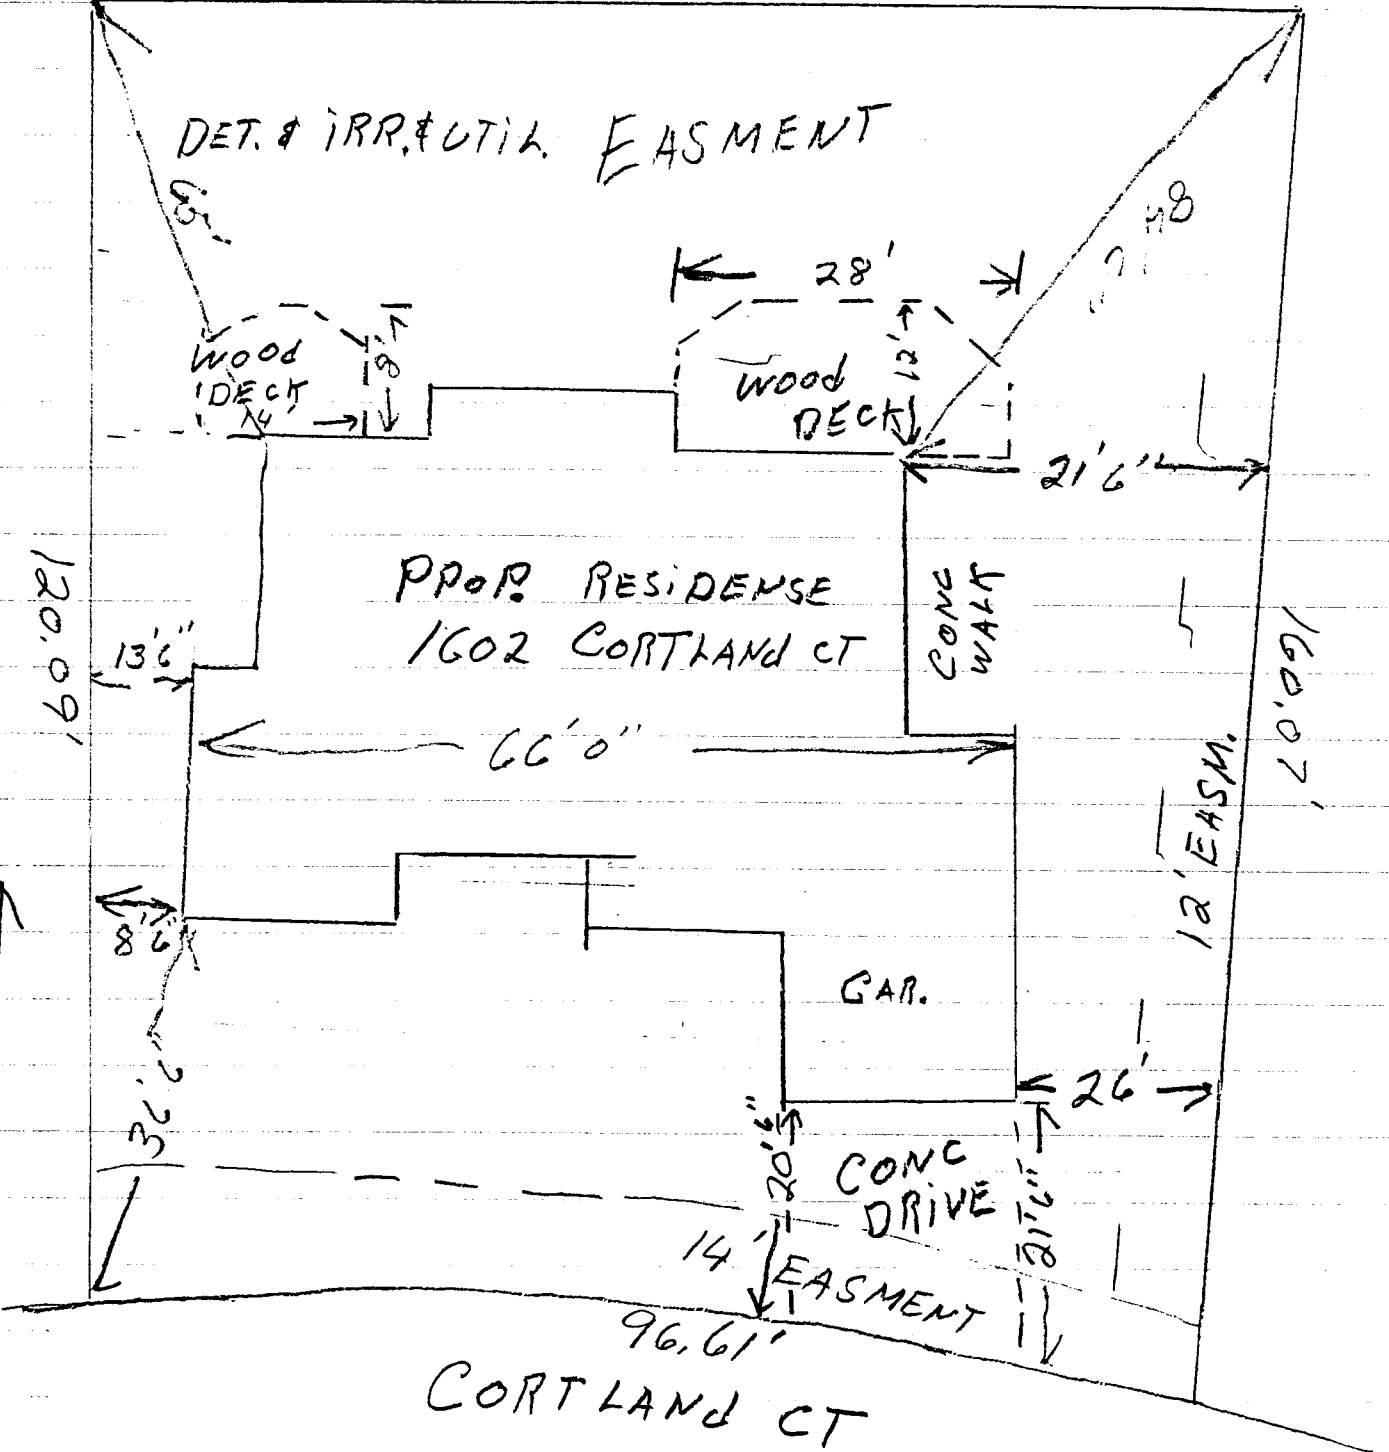 DET. & iRR. & UTiL. EASMENT
28'
8'
12'
Wood
DECK
14'
Wood
DECK
21'6"
PROP. RESiDENSE
1602 CORTLANd CT
CONC
WALK
120.09'
13'6"
66'0"
12' EASM.
8'6"
GAR.
26'
36'6"
20'6"
CONC
DRiVE
21'6"
14' EASMENT
96.61'
CORTLANd CT